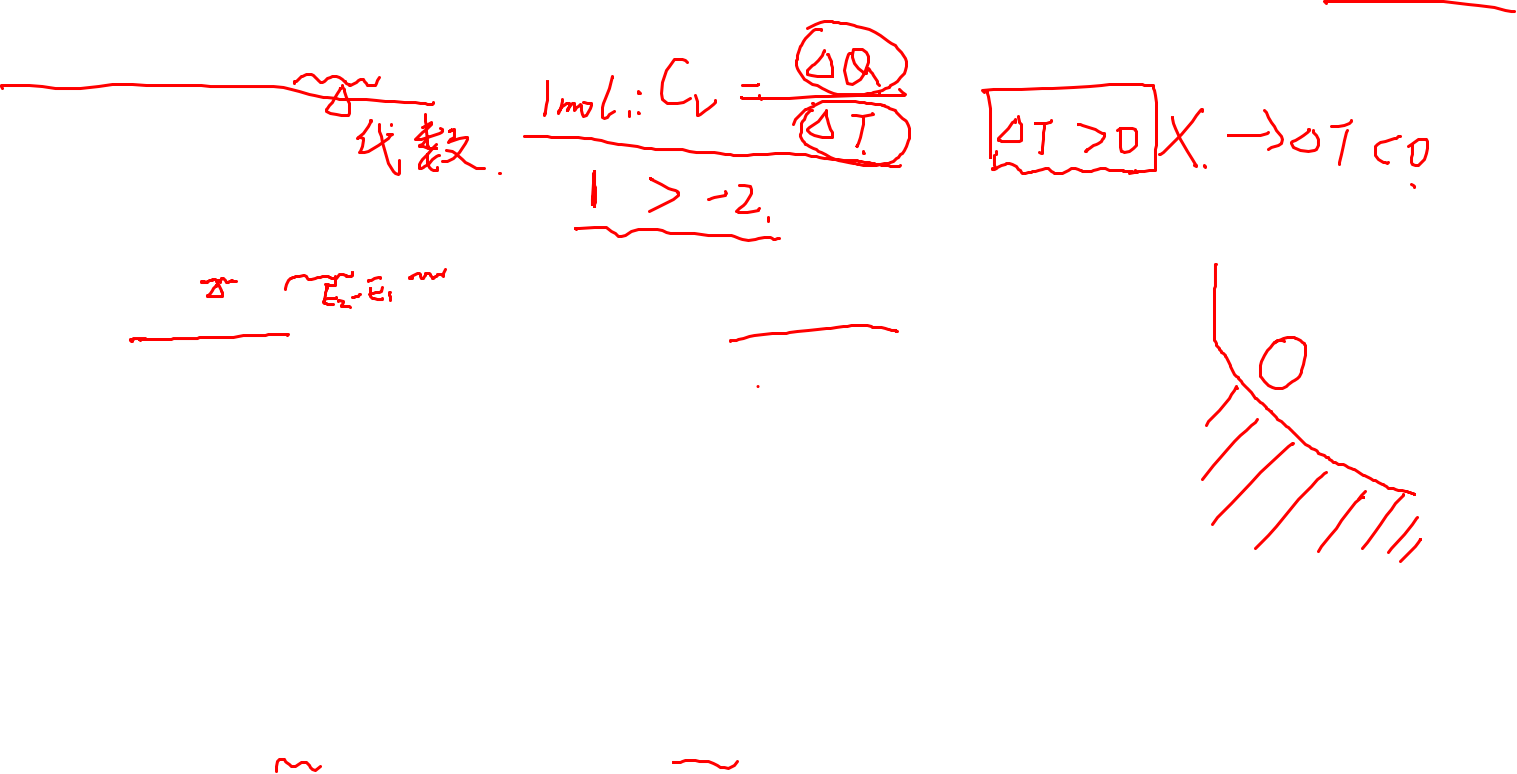 Δ
代数.
1mol: Cᵥ = ΔQ / ΔT
1 > -2.
ΔT > 0 X. → ΔT < 0
Δ E₂-E₁